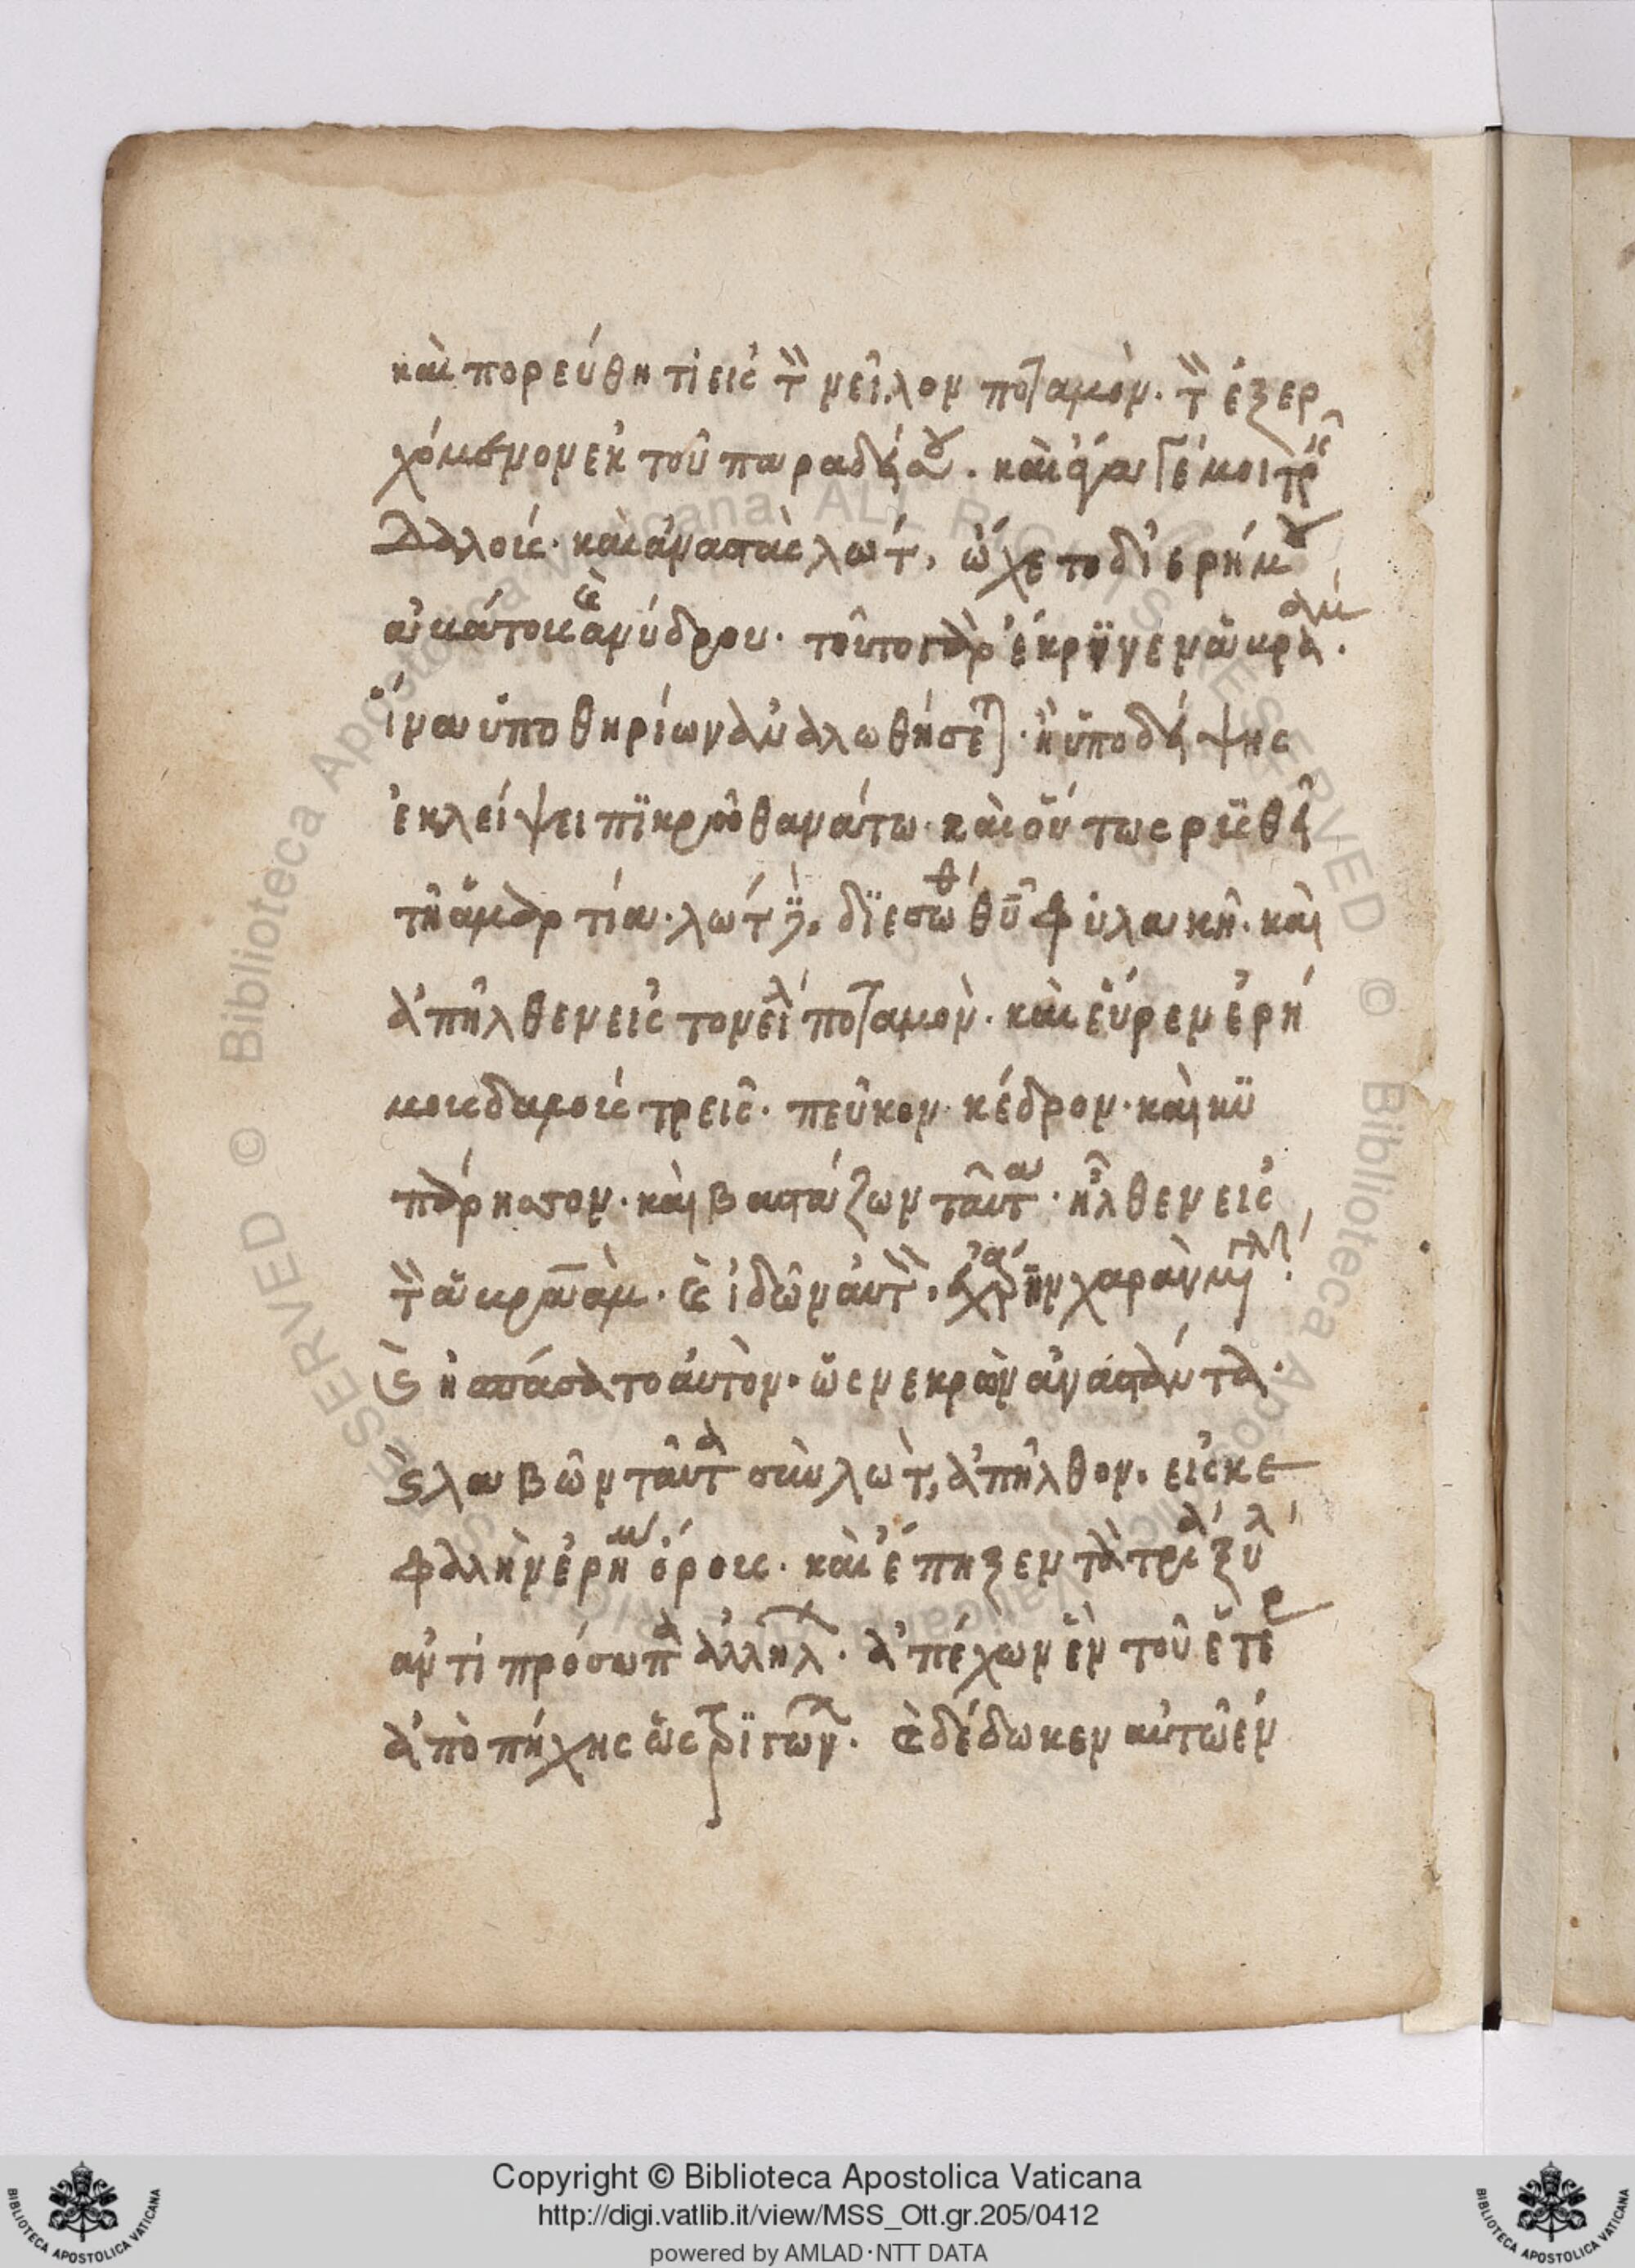 καὶ πορεύθητι εἰς τὸν νεῖλον ποταμὸν· τὸν ἐξερ
χόμενον ἐκ τοῦ παραδείσου. καὶ ἄγαγέ μοι τρεῖς
δαλοίς· καὶ ἀναστὰς λωτ, ὤχετο δι' ἐρήμου
ἀβάτου καὶ ἀνύδρου. τοῦτο γὰρ ἔκρινεν ἀβραάμ.
ἵνα ὑπὸ θηρίων ἀναλωθήσεται· ἢ ὑπὸ δίψης
ἐκλείψει πικρῷ θανάτω· καὶ οὕτως ρυσθῆ
τῆ ἁμαρτία· λωτ
ἀπῆλθεν εἰς τὸν νεῖλον ποταμὸν· καὶ εὗρεν ἐρή
μους δαλοὺς τρεῖς· πεῦκον· κέδρον· καὶ κυ
πάρησον· καὶ βαστάζων ταῦτα· ἦλθεν εἰς
τὸν ἀβραάμ. καὶ ἰδὼν αὐτὸν, ἐχάρην χαρὰν μεγάλην·
καὶ ἠσπάσατο αὐτὸν· ὡς νεκρὸν ἀναστάντα·
καὶ λαβὼν ταῦτα σὺν λωτ, ἀπῆλθον. εἰς κε
φαλὴν ἐρήμου ὄρους· καὶ ἔπηξεν τὰ τρία ξύλα
ἀντιπρόσωπα ἀλλήλων. ἀπέχων ἓν τοῦ ἑτέρου
ἀπὸ πήχης ὡς τριγων. καὶ δέδωκεν αὐτῶ ἐν
Copyright © Biblioteca Apostolica Vaticana
http://digi.vatlib.it/view/MSS_Ott.gr.205/0412
powered by AMLAD·NTT DATA